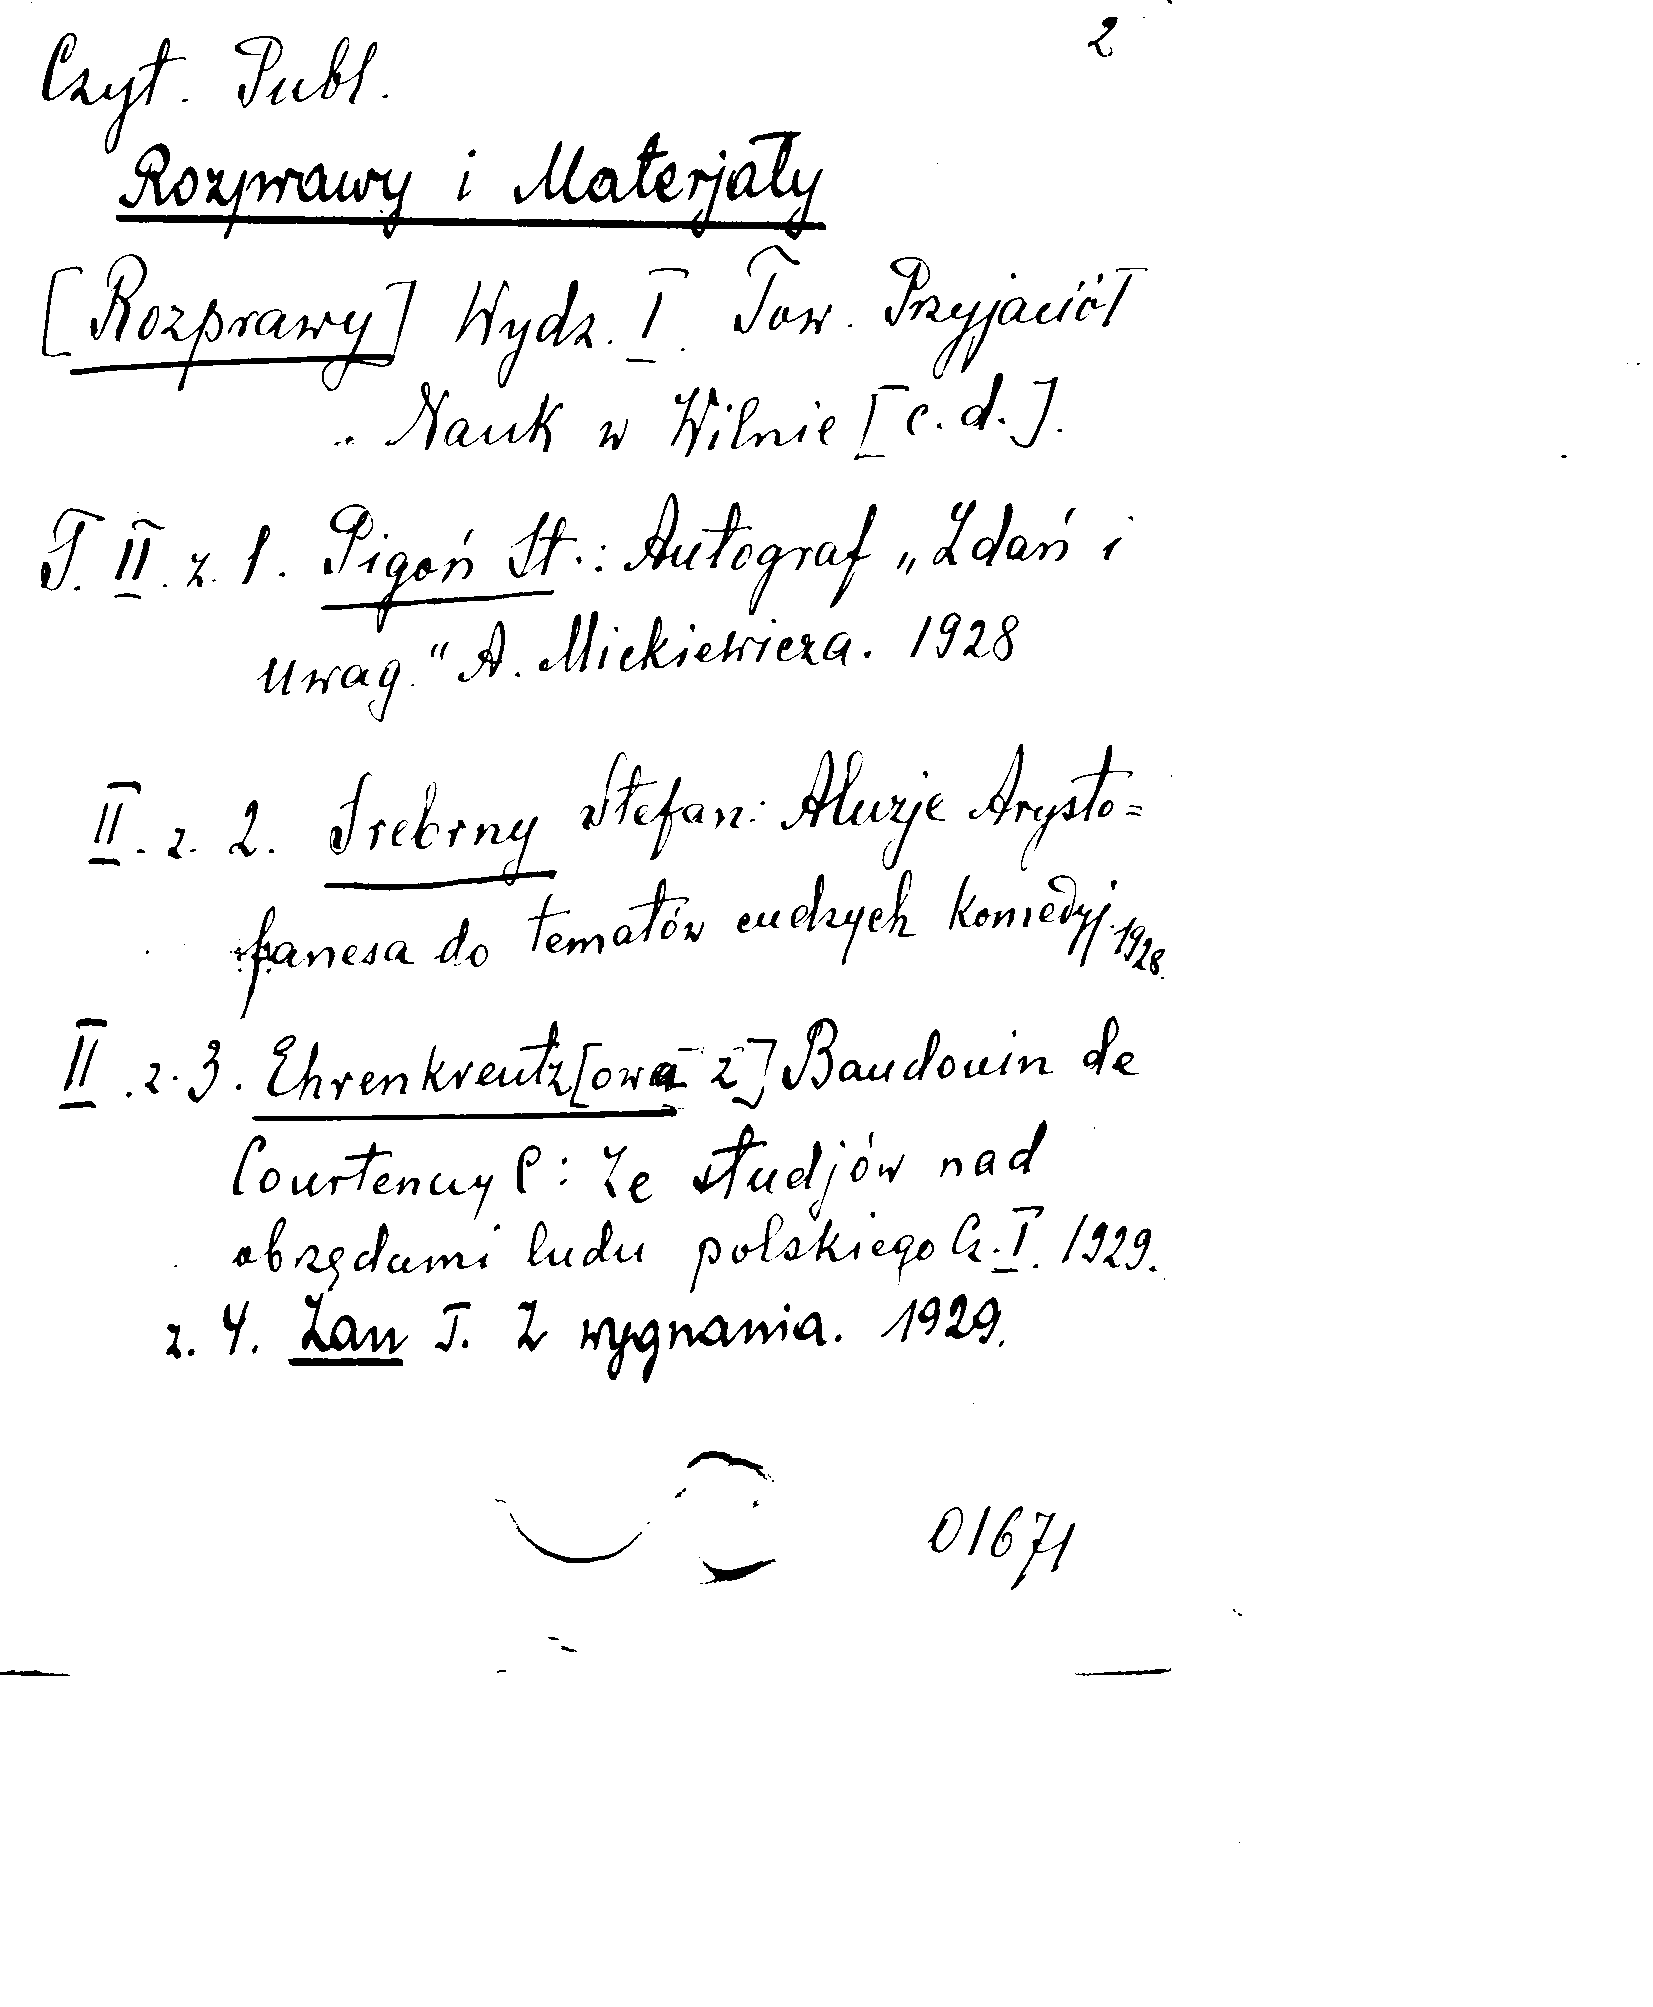 2
Czyt. Publ.
Rozprawy i Materjały
[Rozprawy] Wydz. I. Tow. Przyjaciół
Nauk w Wilnie [c. d.].
T. II. z. 1. Pigoń St.: Autograf „Zdań i
uwag.“ A. Mickiewicza. 1928
II. z. 2. Srebrny Stefan: Aluzje Arysto=
fanesa do tematów cudzych komedyj. 1928.
II. z. 3. Ehrenkreutz[owa z] Baudouin de
Courtenay C: Ze studjów nad
obrzędami ludu polskiego Cz. I. 1929.
z. 4. Zan T. Z wygnania. 1929.
01671